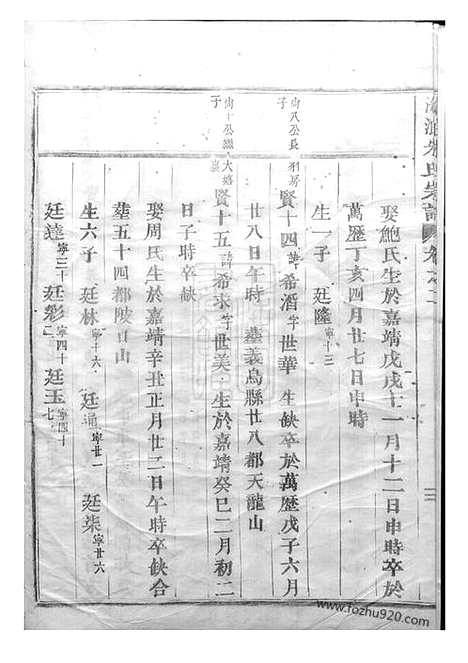 朱氏宗譜 卷之二
娶鮑氏生於嘉靖戊戌十一月十二日申時卒於
萬歷丁亥四月廿七日申時
生一子 廷隆寧十三
尙八公長子
賢十四諱希酒字世華 生缺卒於萬歷戊子六月
廿八日午時 塟義烏縣廿八都天龍山
尙十公繼子
賢十五諱希求字世美 生於嘉靖癸巳二月初二
日子時卒缺
娶周氏生於嘉靖辛丑正月廿二日午時卒缺合
塟五十四都陂口山
生六子 廷林寧十六 廷通寧廿一 廷柒寧廿六
廷達寧三十 廷彩寧四十二 廷玉寧四十七
www.fozhu920.com